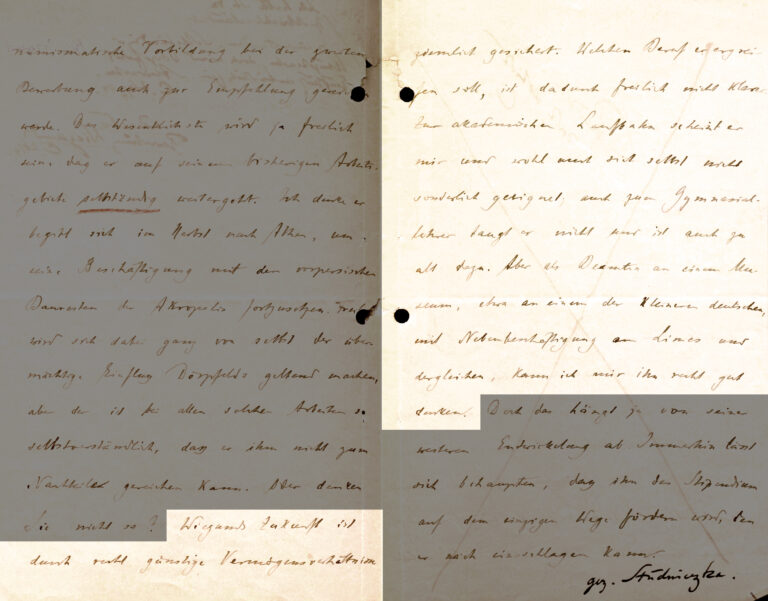 numismatische Vorbildung bei der zweiten
Bewerbung auch zur Empfehlung gereichen
werde. Das Wesentlichste wird ja freilich
sein, dag er auf seinem bisherigen Arbeits-
gebiete selbständig weitergeht. Ich denke er
begibt sich im Herbst nach Athen, um
seine Beschäftigung mit den vorpersischen
Bauresten der Akropolis fortzusetzen. Freilich
wird sich dabei ganz von selbst der über
mächtige Einflug Dörpfelds geltend machen,
aber der ist bei allen solchen Arbeiten so
selbstverständlich, dass er ihm nicht zum
Nachtheile gereichen kann. Oder denken
Sie nicht so? Wiegands Zukunft ist
durch recht günstige Vermögensverhältnisse
ziemlich gesichert. Welchen Beruf er ergrei-
fen soll, ist dadurch freilich nicht klar.
Zur akademischen Laufbahn scheint er
mir und wohl auch sich selbst nicht
sonderlich geeignet, auch zum Gymnasial-
lehrer taugt er nicht und ist auch zu
alt dazu. Aber als Beamten an einem Mu-
seum, etwa an einem der kleineren deutschen,
mit Nebenbeschäftigung am Limes und
dergleichen, kann ich mir ihn recht gut
denken. Doch das hängt ja von seiner
weiteren Entwickelung ab. Immerhin lässt
sich behaupten, dag ihn das Stipendium
auf dem einzigen Wege fördern wird, den
er noch einschlagen kann.
gez. Studniczka.